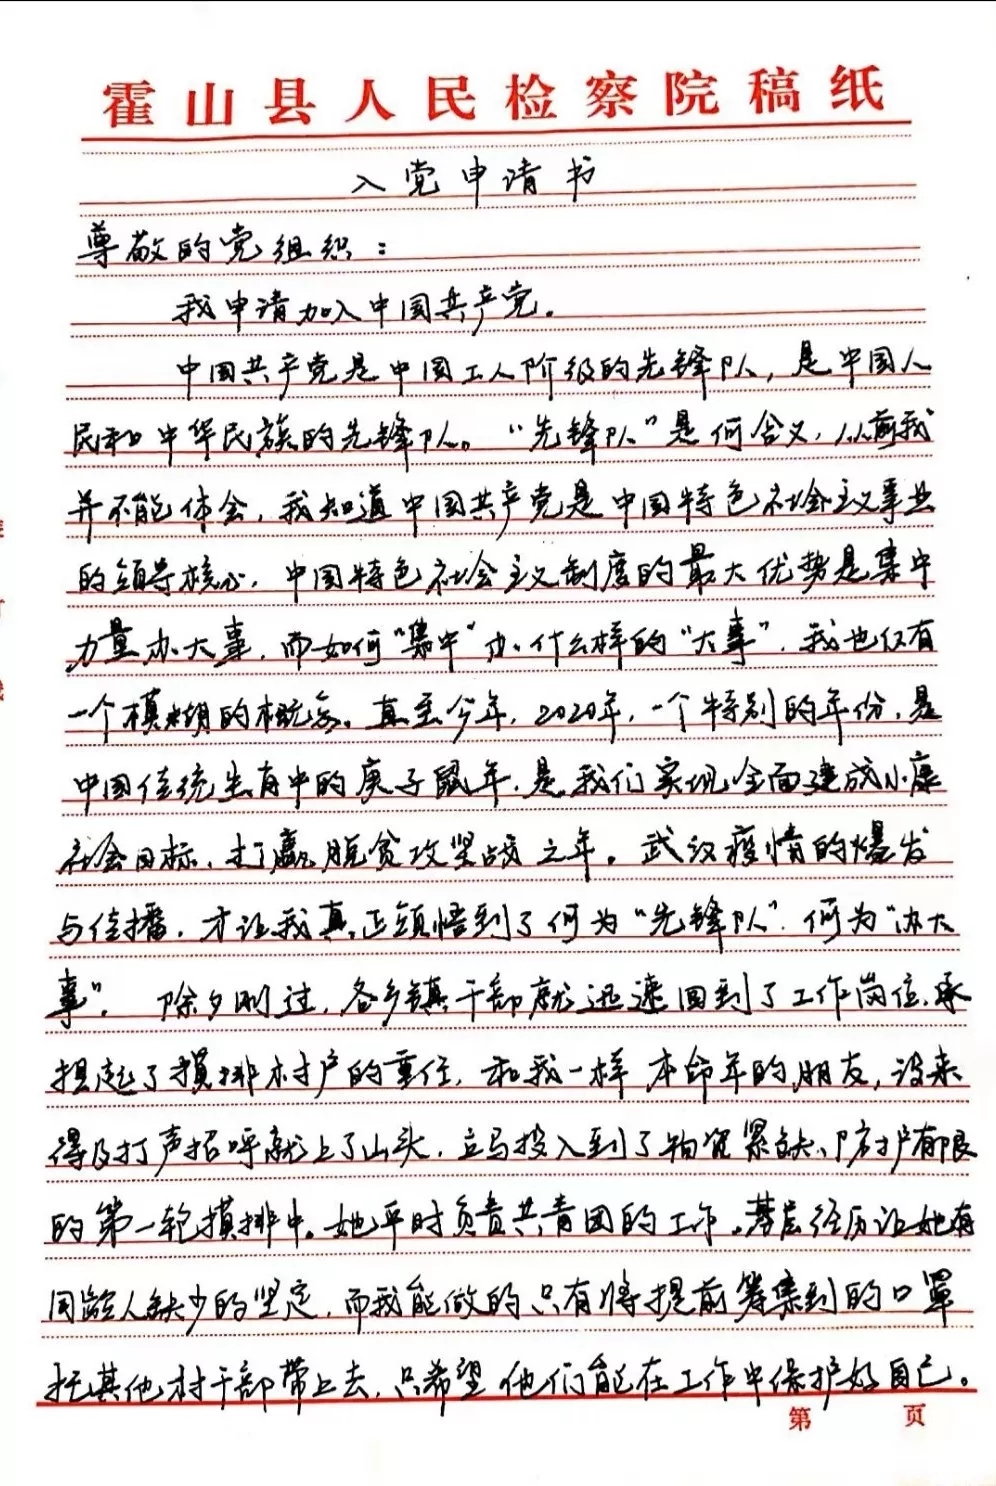 霍山县人民检察院稿纸
入党申请书
尊敬的党组织：
我申请加入中国共产党。
中国共产党是中国工人阶级的先锋队，是中国人
民和中华民族的先锋队。“先锋队”是何含义，从前我
并不能体会，我知道中国共产党是中国特色社会主义事业
的领导核心，中国特色社会主义制度的最大优势是集中
力量办大事，而如何“集中”办什么样的“大事”，我也仅有
一个模糊的概念。直至今年，2020年，一个特别的年份，是
中国传统生肖中的庚子鼠年，是我们实现全面建成小康
社会目标，打赢脱贫攻坚战之年。武汉疫情的爆发
与传播，才让我真正领悟到了何为“先锋队”，何为“办大
事”。 除夕刚过，各乡镇干部就迅速回到了工作岗位，承
担起了摸排村户的重任，和我一样本命年的朋友，没来
得及打声招呼就上了山头，立马投入到了物资紧缺、防护有限
的第一轮摸排中。她平时负责共青团的工作，基层经历让她有
同龄人缺少的坚定，而我能做的只有将提前筹集到的口罩
托其他村干部带上去，只希望他们能在工作中保护好自己。
第 页